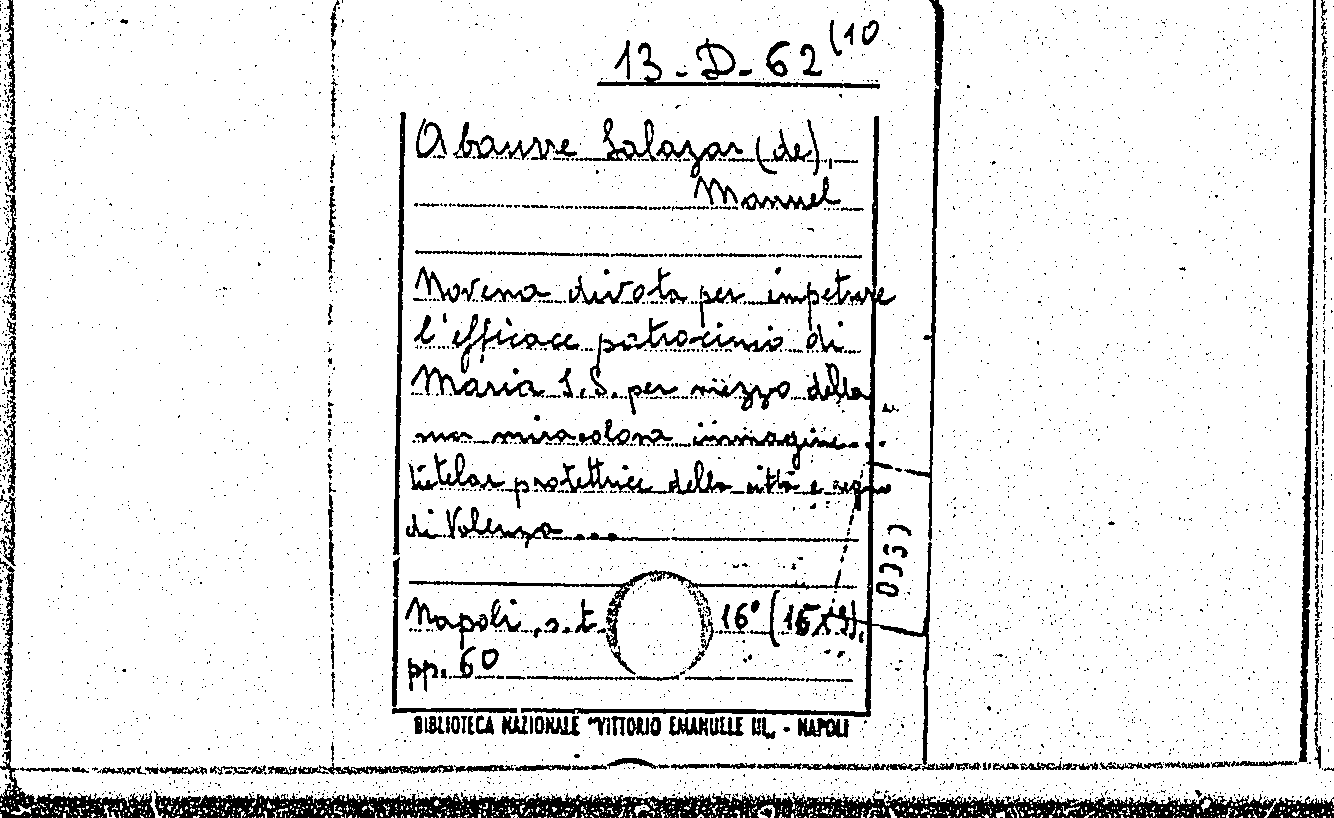 13-D-62 (10
Abauvre Salazar (de),
Manuel
Novena divota per impetrare
l'efficace patrocinio di
Maria S.S. per mezzo della
sua miracolosa immagine...
titelar protettrice della città e regno
di Valenza ...
Napoli, s.t. 16° (15x9),
pp. 60
BIBLIOTECA NAZIONALE "VITTORIO EMANUELE III" - NAPOLI